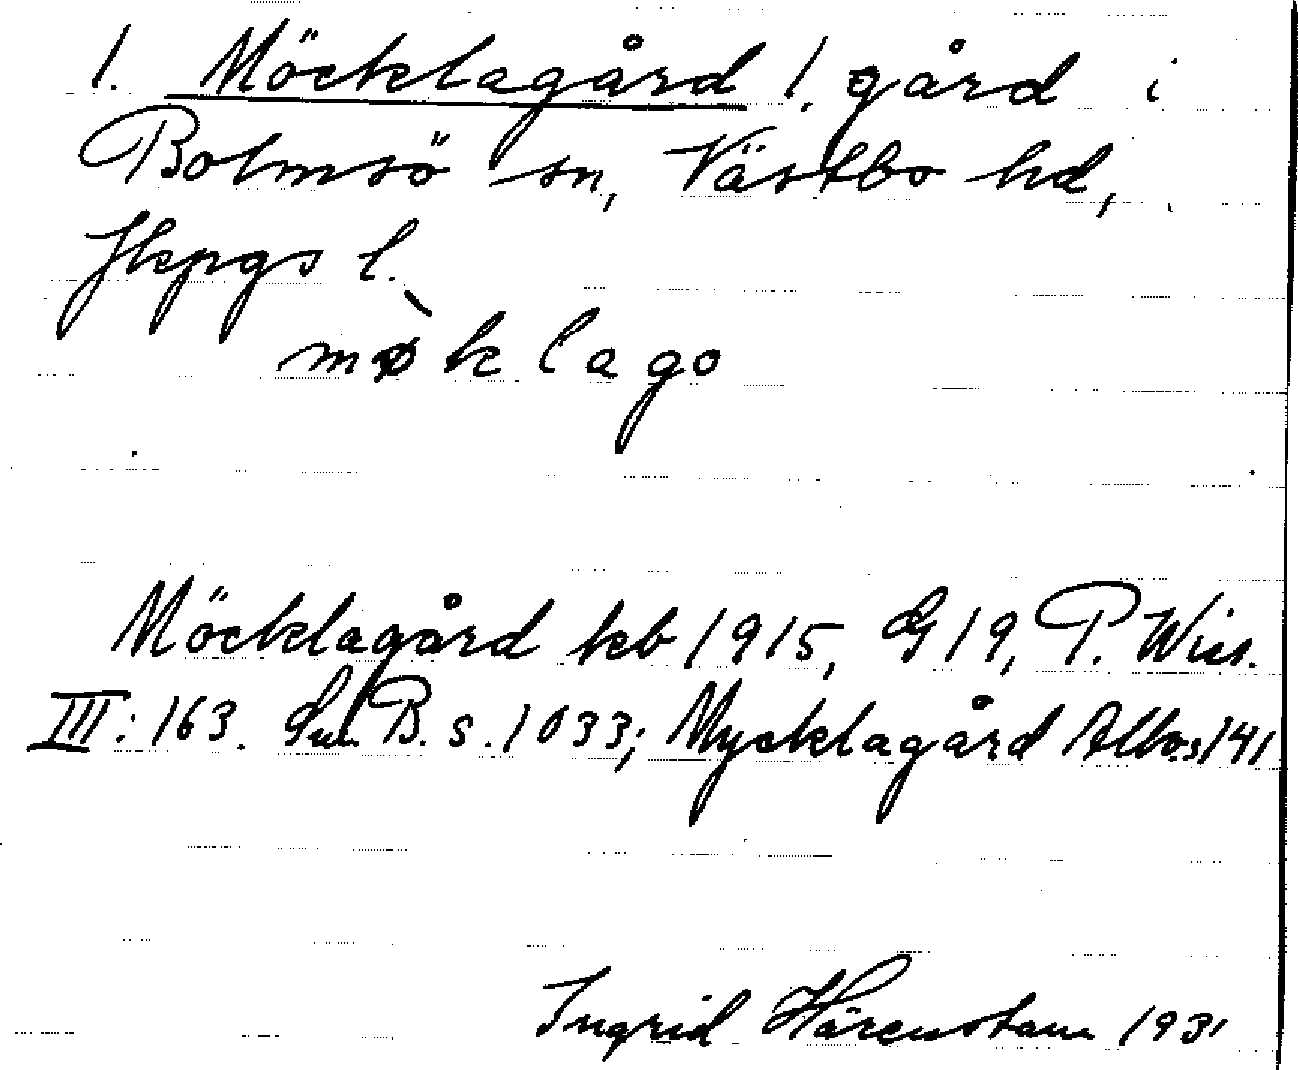 1. Möcklagård 1. gård i
Bolmsö sn, Västbo hd,
Jkpgs l.
mø̀klago
Möcklagård kb 1915, G 19, P. Wies.
III: 163. B. s. 1033; Mycklagård Allbo s 141
Ingrid Härenstam 1931